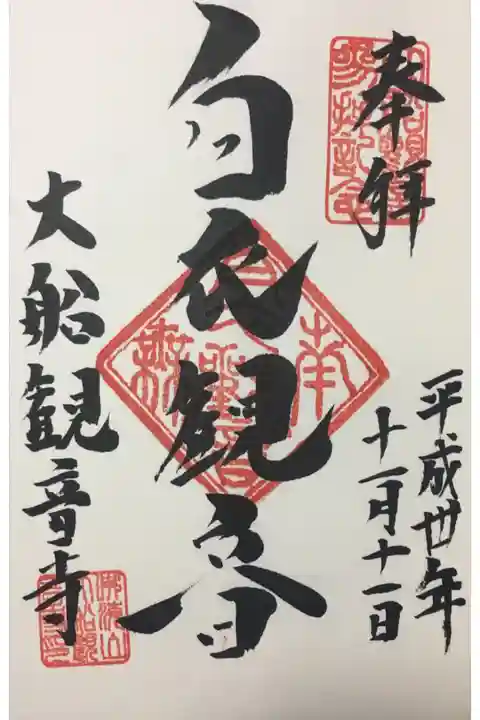 奉拝
平成卅年
十一月十一日
白衣観音
大船観音寺
南無